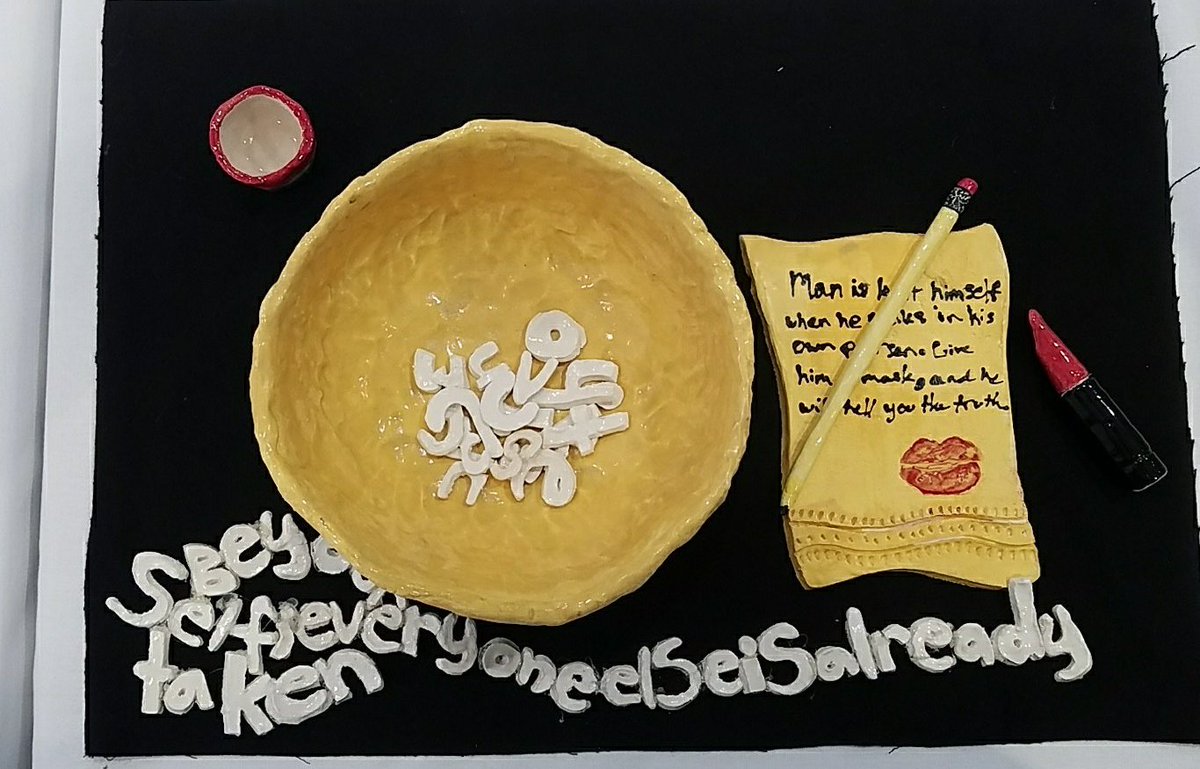 Man is himself
when he in his
own Give
him mask, and he
will tell you the truth.
Beyo
Self;everyoneelSeiSalready
taken